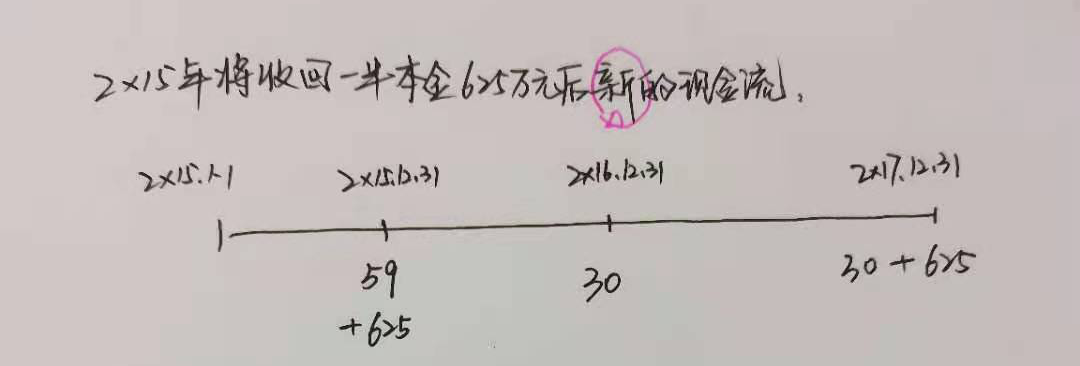 2×15年将收回一半本金625万元后新的现金流，
2×15.1.1 2×15.12.31 2×16.12.31 2×17.12.31
59 30 30+625
+625